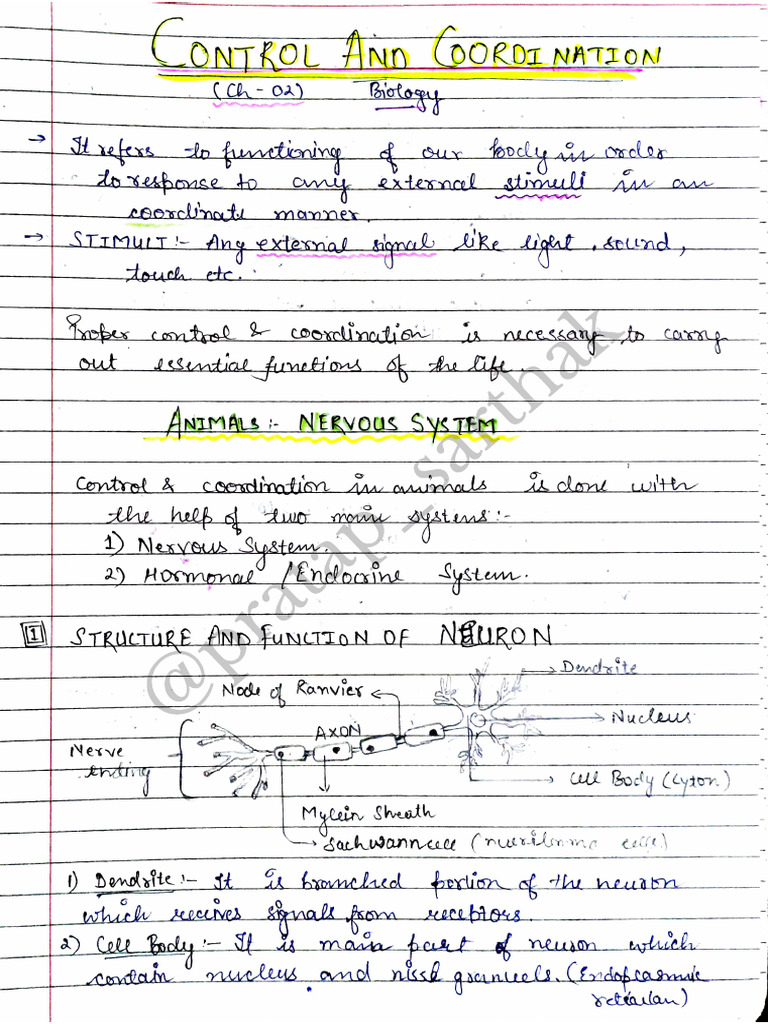 CONTROL AND COORDINATION
(Ch-02) Biology
→ It refers to functioning of our body in order
to response to any external stimuli in an
coordinate manner.
→ STIMULI :- Any external signal like light, sound,
touch etc.
Proper control & coordination is necessary to carry
out essential functions of the life.
ANIMALS :- NERVOUS SYSTEM
Control & coordination in animals is done with
the help of two main systems :-
1) Nervous System.
2) Hormonal / Endocrine System.
1 STRUCTURE AND FUNCTION OF NEURON
Dendrite
Node of Ranvier
Nucleus
AXON
Nerve
ending
Cell Body (Cyton)
Mylein Sheath
Sachwanncell (
1) Dendrite :- It is branched portion of the neuron
which recives signals from receptors.
2) Cell Body :- It is main part of neuson which
contain nucleus and nissl granuels. (Endoplasmic
@pratap_sarthak